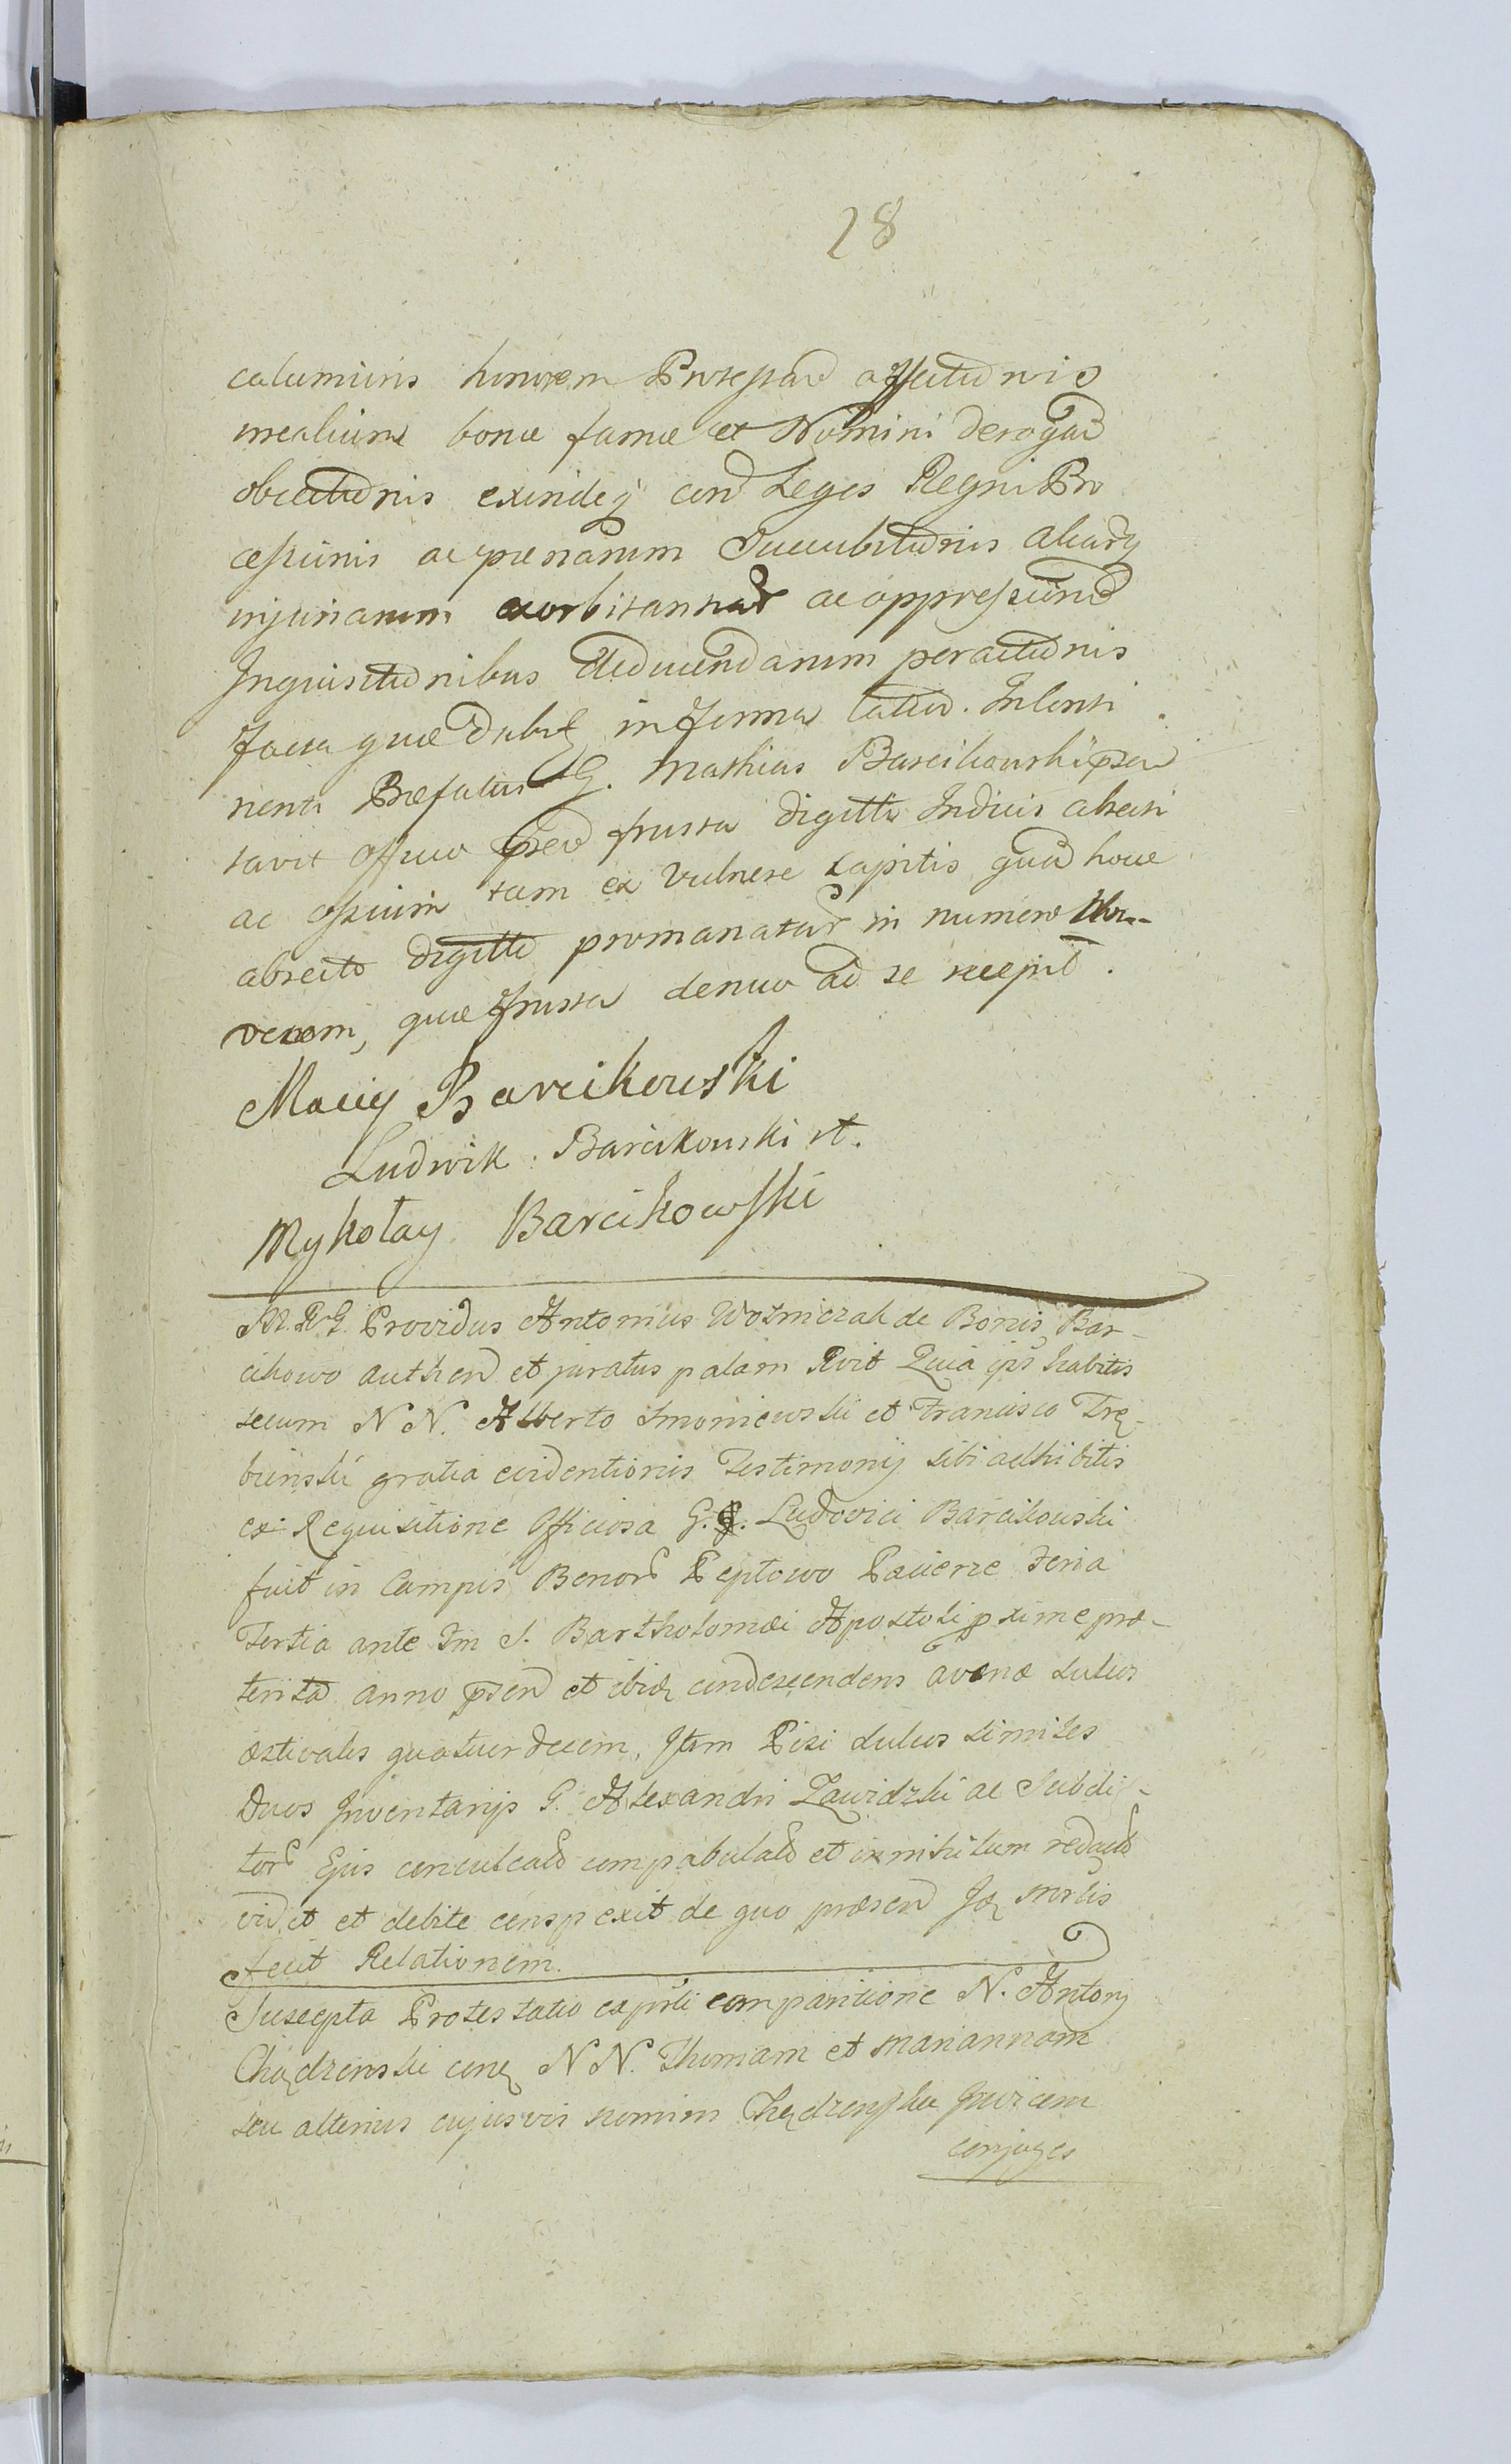 28
calumniis honorem Protestan affectionis
mealium bonæ famæ et Nomini derogan
obiectionis exindeq cond Leges Regni Pro
cessionis ac pœnarum Succubitionis aliarq
injuriarum exorbitantiar ac oppression
Inquisitionibus deducendarum peractionis
facta quæ dabit in forma latior. In Conti
nenti Præfatus G. Mathias Barcikowski præsen
tavit Officio præsen frusta digiti Indicis absciti
ac ossium tam ex vulnere capitis quam hocce
abscito digito promanatar in numero
decem, quæ frusta denuo ad se recepit.
Maciey Barcikowski
Ludwik Barcikowski st.
Mykołay Barcikowski
M. R. G. Providus Antonius Wozniczak de Bonis Bar-
cikowo authen et juratus palam Rvit Quia ips habitis
secum N N. Alberto Smoniewski et Francisco Trę-
binski gratia evidentionis Testimonij sibi adhibitis
ex Requisitione Officiosa G. G. Ludovici Barcikowski
fuit in Campis Bonor Peptowo Pacierze Feria
Tertia ante Fm S. Bartholomæi Apostoli pxime præ-
terita anno præsen et ibiq condescendens avenæ sulcos
æstivales quatuordecim, Item Pisi sulcos similes
Duos Inventarijs G. Alexandri Zawidzki ac Subdi-
tor Ejus conculcato compabulato et in nihilum redacto
vidit et debite conspexit de quo præsen Jdq mrlis
fecit Relationem.
Suscepta Protestatio exprli comparitione N. Antonij
Chądzenski conq N N. Thomam et Mariannam
seu alterius cujusvis nominis Chądzenskie Invicem
conjuges